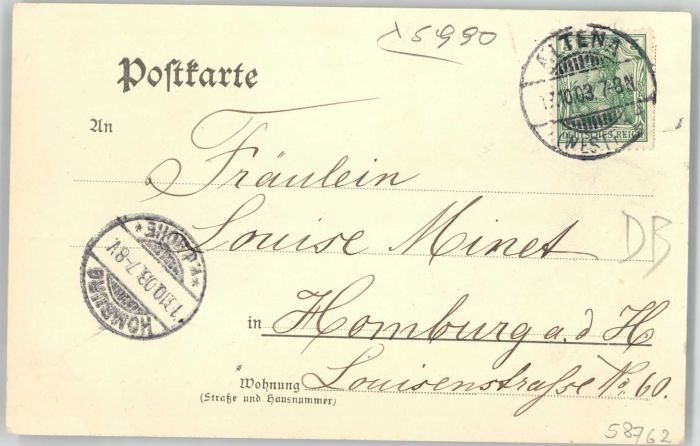 λ5990
Postkarte
ALTENA
10.03. 7-8N
(WESTF.)
DEUTSCHES REICH
An
Fräulein
Louise Minet
DB
in Homburg a. d H
HOMBURG
10.03. 7-8V.
* v.d. HÖHE *
Wohnung Louisenstraße No. 60.
(Straße und Hausnummer)
58762